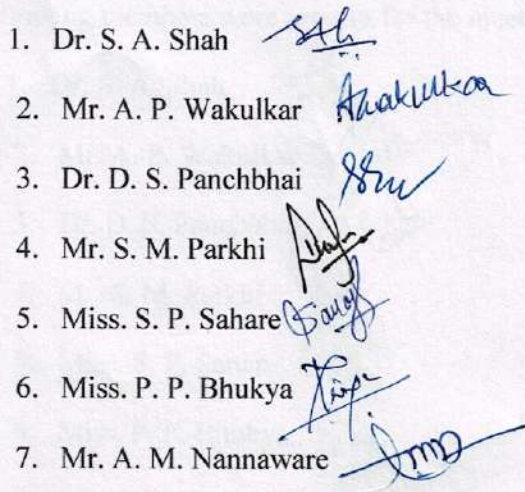 1. Dr. S. A. Shah
2. Mr. A. P. Wakulkar Awakulkar
3. Dr. D. S. Panchbhai
4. Mr. S. M. Parkhi
5. Miss. S. P. Sahare
6. Miss. P. P. Bhukya
7. Mr. A. M. Nannaware